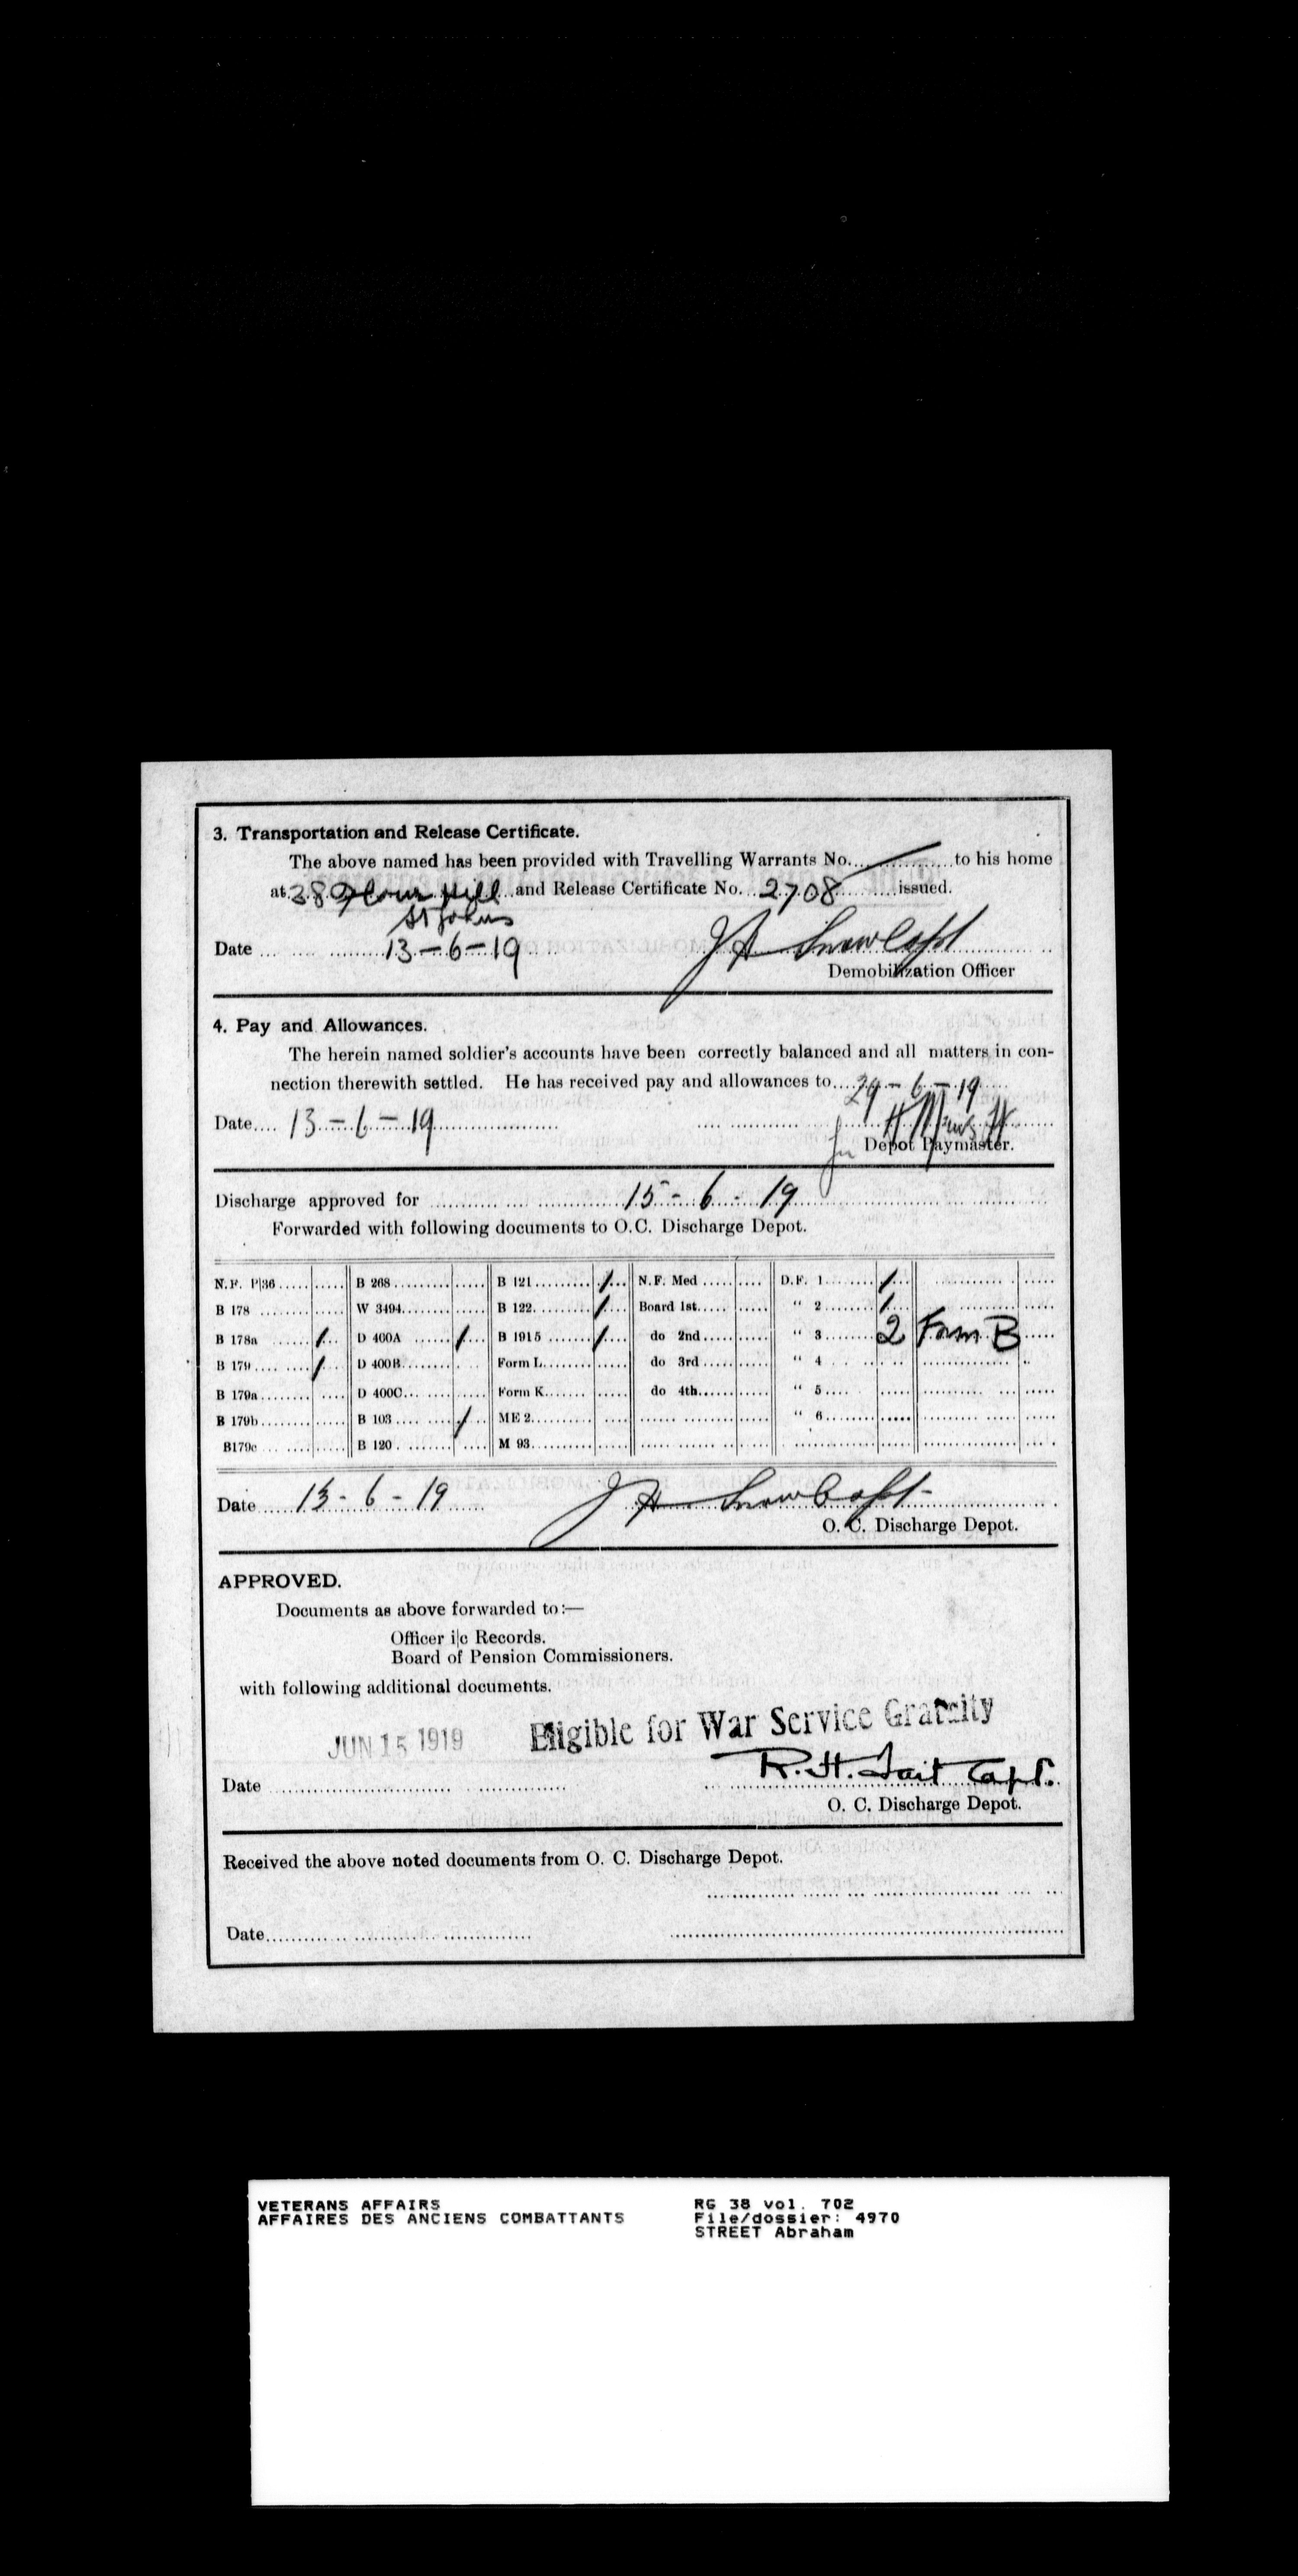 3. Transportation and Release Certificate.
The above named has been provided with Travelling Warrants No. / to his home
at 38 Flour Hill and Release Certificate No. 2708 issued.
St Johns
Date 13-6-19 J A Snow Capt
Demobilization Officer
4. Pay and Allowances.
The herein named soldier's accounts have been correctly balanced and all matters in con-
nection therewith settled. He has received pay and allowances to 29-6-19
Date 13-6-19
for Depot Paymaster.
Discharge approved for 15-6-19
Forwarded with following documents to O.C. Discharge Depot.
N.F. P|36 B 268 B 121 / N.F. Med D.F. 1 /
B 178 W 3494 B 122 / Board 1st " 2 1
B 178a / D 400A / B 1915 / do 2nd " 3 2 Form B
B 179 / D 400B Form L do 3rd " 4
B 179a D 400C Form K do 4th " 5
B 179b B 103 / ME 2 " 6
B179c B 120 M 93
Date 13-6-19 J A Snow Capt
O. C. Discharge Depot.
APPROVED.
Documents as above forwarded to:—
Officer i|c Records.
Board of Pension Commissioners.
with following additional documents.
JUN 15 1919 Eligible for War Service Gratuity
Date R. H. Tait Capt.
O. C. Discharge Depot.
Received the above noted documents from O. C. Discharge Depot.
Date
VETERANS AFFAIRS RG 38 vol. 702
AFFAIRES DES ANCIENS COMBATTANTS File/dossier: 4970
STREET Abraham